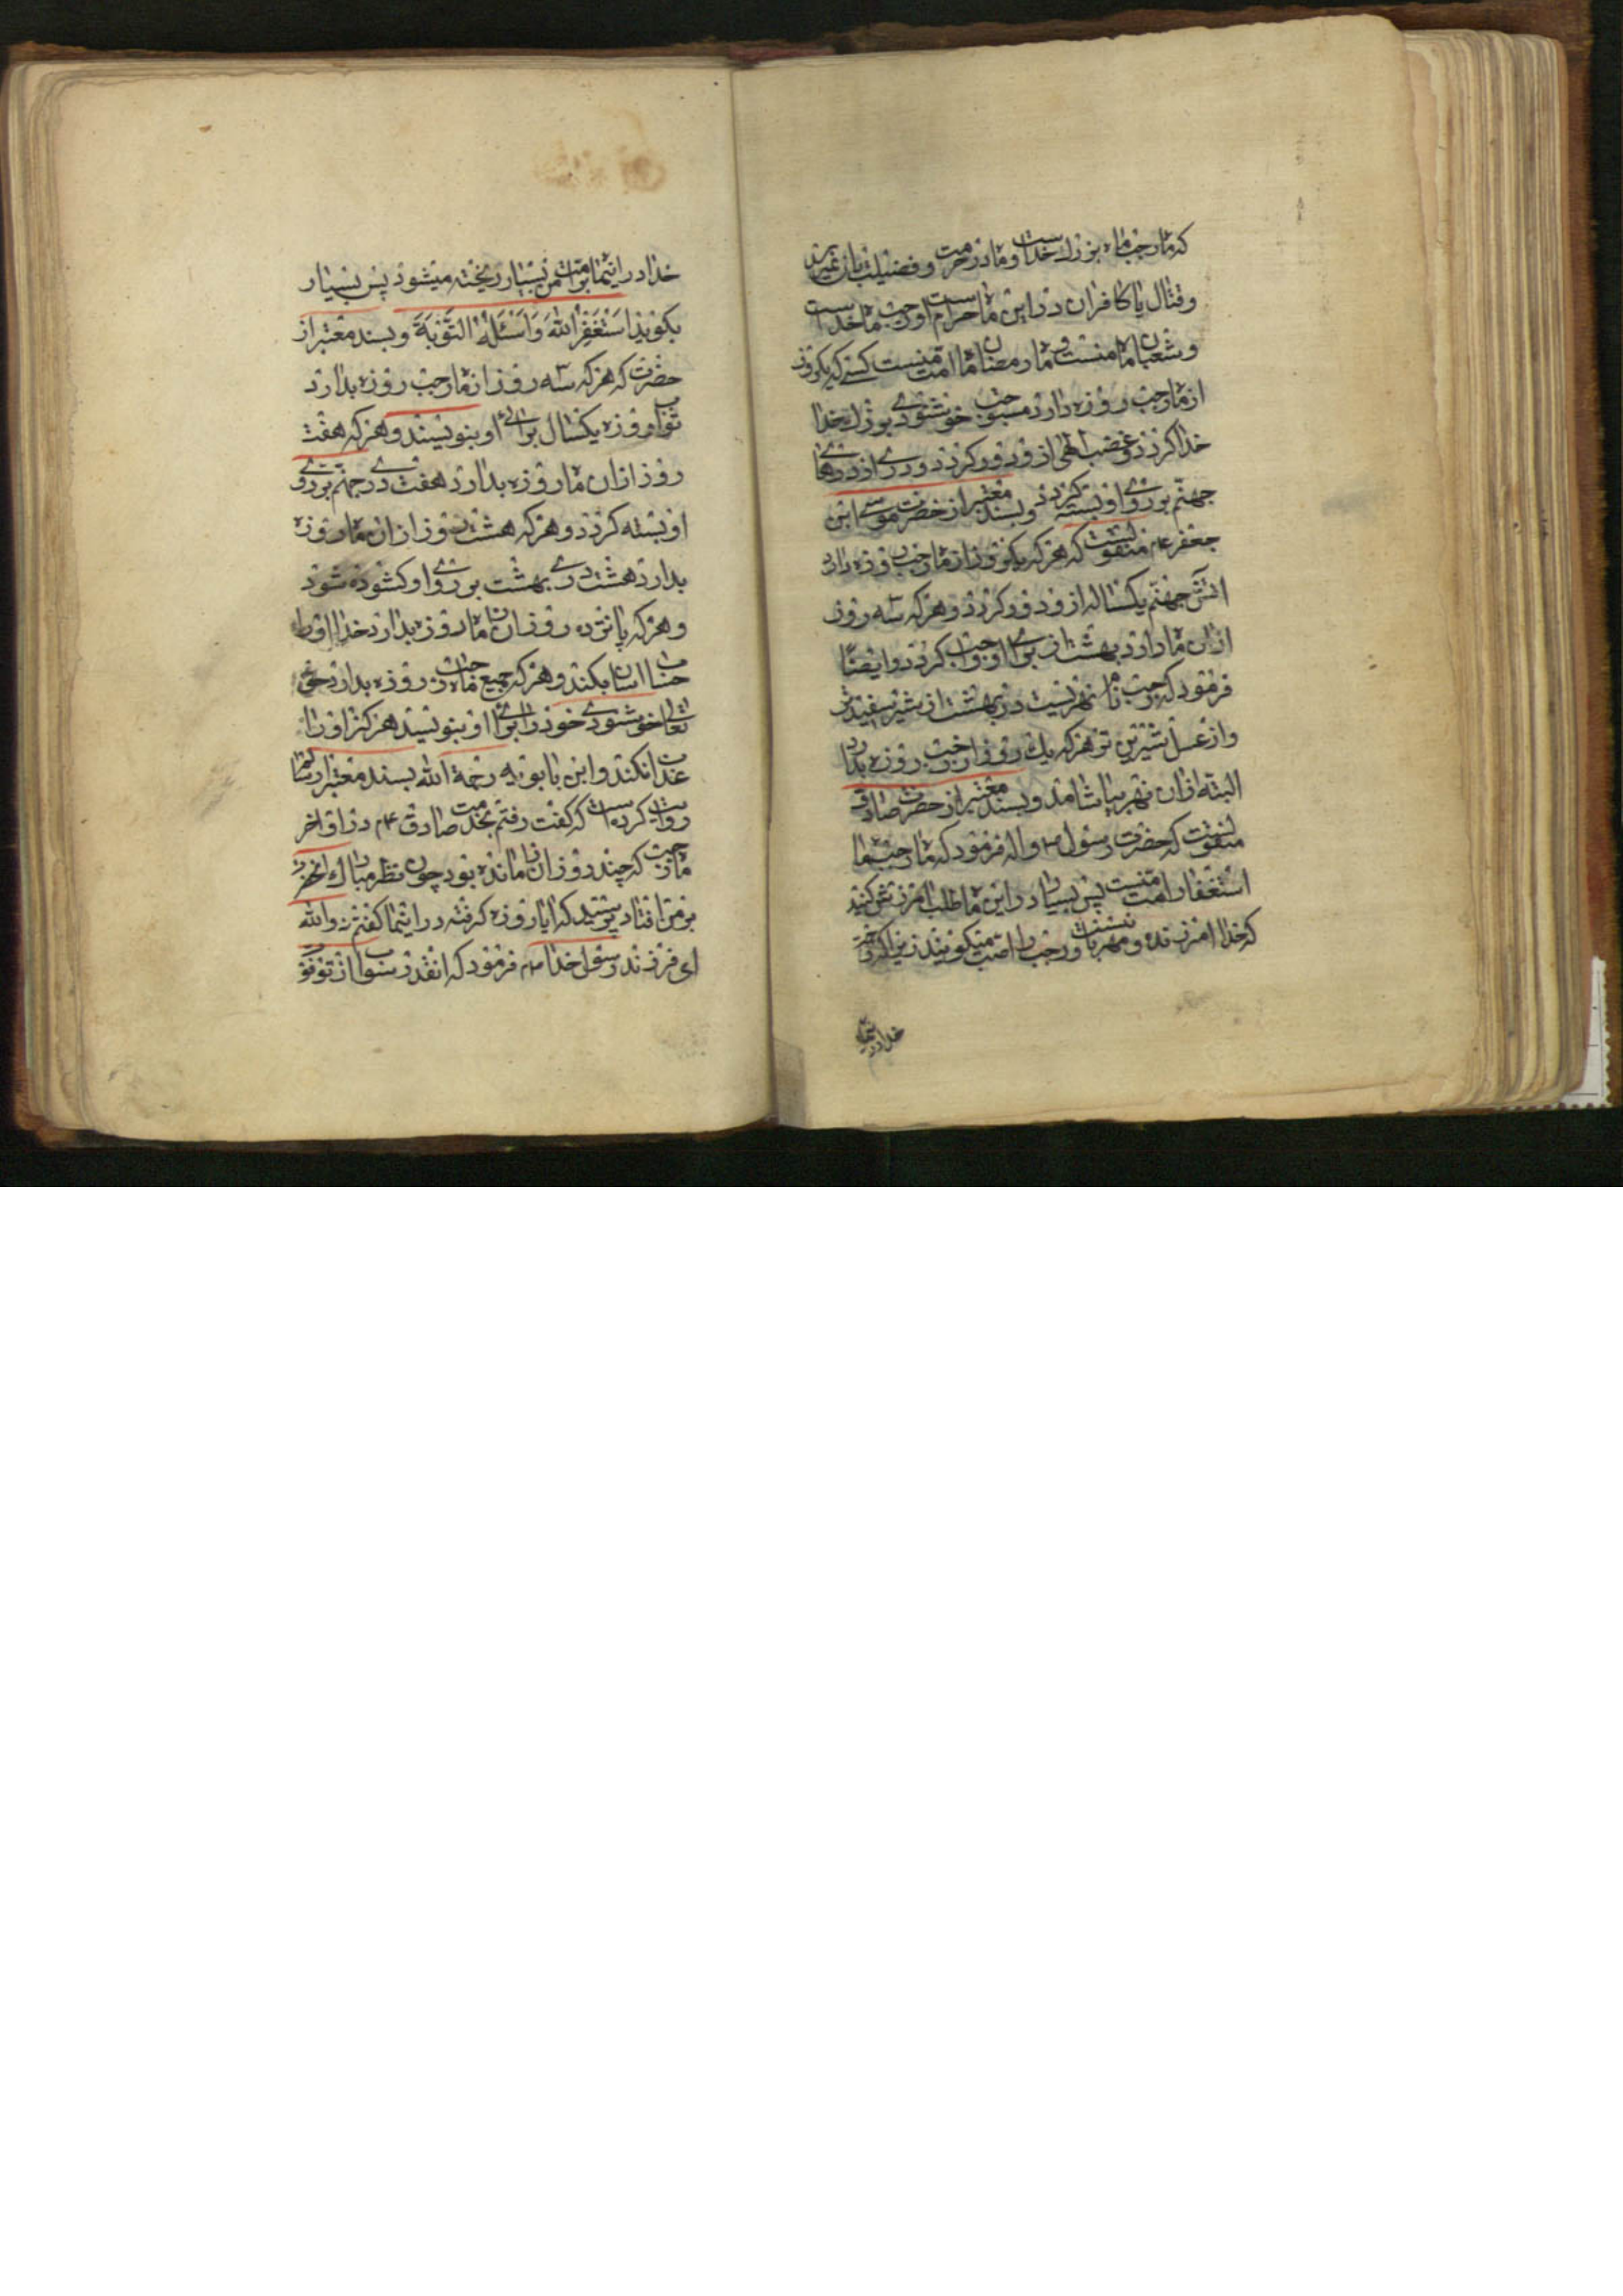 که ماه رجب ماه بزرک خداست و ماهی در حرمت و فضیلت بان نمیرسد
و قتال با کافران در این ماه حرام است و رجب ماه خداست
و شعبان ماه منست و ماه رمضان ماه امت منست کسی که یکروز
از ماه رجب روزه دارد مستوجب خوشنودی بزرک خدا
خدا کردد و غضب الهی از او دور کردد و دری از درهای
جهنم بر روی او بسته کردد و بسند معتبر از حضرت موسی ابن
جعفر ع۴ منقولست که هر که یکروز از ماه رجب روزه دارد
اتش جهنم یکساله از او دور کردد و هر که سه روز
از ان ماه دارد بهشت از برای او واجب کردد و ایضًا
فرمود که رجب نام نهریست در بهشت از شیر سفیدتر
و از عسل شیرین تر هر که یك روز از رجب روزه بدارد
البته ازان نهر بیاشامد و بسند معتبر از حضرت صادق
منقولست که حضرت رسول ص و اله فرمود که ماه رجب ماه
استغفار امت منست پس بسیار در این ماه طلب امرزش کنید
که خدا امرزنده و مهربانست و رجب را اصب میکویند زیرا که رحمت
خدا در اینماه
خدا در اینماه بر امت من بسیار ریخته میشود پس بسیار
بکویید اَسْتَغْفِرُ اللهَ وَاَسْئَلُهُ التَّوْبَةَ و بسند معتبر از
حضرت که هر که سه روز از ماه رجب روزه بدارد
ثواب روزه یکسال برای او بنویسند و هر که هفت
روز ازان ماه روزه بدارد هفت در جهنم بر روی
او بسته کردد و هر که هشت روز ازان ماه روزه
بدارد هشت در بهشت بر روی او کشوده شود
و هر که پانزده روز ان ماه روزه بدارد خدا او را
حساب اسان بکند و هر که جمیع ماه رجب روزه بدارد حق
تعالی خوشنودی خود را برای او بنویسد هرکز او را
عذاب نکند و ابن بابویه رحمة الله بسند معتبر از سالم
روایت کرده است که کفت رفتم بخدمت صادق ع۴ در اواخر
ماه رجب که چند روز ازان مانده بود چون نظر مبارك انحضرت
بر من افتاد پرسید که ایا روزه کرفته در اینماه کفتم نه والله
ای فرزند رسول خدا ص فرمود که انقدر ثواب از تو فوت